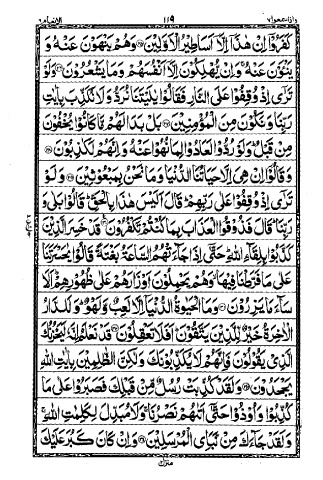 واذا سمعوا ٧ ١١٩ الانعام ٦
كَفَرُوْۤا اِنْ هٰذَاۤ اِلَّاۤ اَسَاطِيْرُ الْاَوَّلِيْنَ ۝ وَهُمْ يَنْهَوْنَ عَنْهُ وَ
يَنْـَٔوْنَ عَنْهُ ۚ وَاِنْ يُّهْلِكُوْنَ اِلَّاۤ اَنْفُسَهُمْ وَمَا يَشْعُرُوْنَ ۝ وَلَوْ
تَرٰۤى اِذْ وُقِفُوْا عَلَى النَّارِ فَقَالُوْا يٰلَيْتَنَا نُرَدُّ وَلَا نُكَذِّبَ بِاٰيٰتِ
رَبِّنَا وَنَكُوْنَ مِنَ الْمُؤْمِنِيْنَ ۝ بَلْ بَدَا لَهُمْ مَّا كَانُوْا يُخْفُوْنَ
مِنْ قَبْلُ ؕ وَلَوْ رُدُّوْا لَعَادُوْا لِمَا نُهُوْا عَنْهُ وَاِنَّهُمْ لَكٰذِبُوْنَ ۝
وَقَالُوْۤا اِنْ هِيَ اِلَّا حَيَاتُنَا الدُّنْيَا وَمَا نَحْنُ بِمَبْعُوْثِيْنَ ۝ وَلَوْ
تَرٰۤى اِذْ وُقِفُوْا عَلٰى رَبِّهِمْ ؕ قَالَ اَلَيْسَ هٰذَا بِالْحَقِّ ؕ قَالُوْا بَلٰى وَ
رَبِّنَا ؕ قَالَ فَذُوْقُوا الْعَذَابَ بِمَا كُنْتُمْ تَكْفُرُوْنَ ۝ قَدْ خَسِرَ الَّذِيْنَ
كَذَّبُوْا بِلِقَآءِ اللّٰهِ ؕ حَتّٰۤى اِذَا جَآءَتْهُمُ السَّاعَةُ بَغْتَةً قَالُوْا يٰحَسْرَتَنَا
عَلٰى مَا فَرَّطْنَا فِيْهَا ۙ وَهُمْ يَحْمِلُوْنَ اَوْزَارَهُمْ عَلٰى ظُهُوْرِهِمْ ؕ اَلَا
سَآءَ مَا يَزِرُوْنَ ۝ وَمَا الْحَيٰوةُ الدُّنْيَاۤ اِلَّا لَعِبٌ وَّلَهْوٌ ؕ وَلَلدَّارُ
الْاٰخِرَةُ خَيْرٌ لِّلَّذِيْنَ يَتَّقُوْنَ ؕ اَفَلَا تَعْقِلُوْنَ ۝ قَدْ نَعْلَمُ اِنَّهٗ لَيَحْزُنُكَ
الَّذِيْ يَقُوْلُوْنَ فَاِنَّهُمْ لَا يُكَذِّبُوْنَكَ وَلٰكِنَّ الظّٰلِمِيْنَ بِاٰيٰتِ اللّٰهِ
يَجْحَدُوْنَ ۝ وَلَقَدْ كُذِّبَتْ رُسُلٌ مِّنْ قَبْلِكَ فَصَبَرُوْا عَلٰى مَا
كُذِّبُوْا وَاُوْذُوْا حَتّٰۤى اَتٰىهُمْ نَصْرُنَا ۚ وَلَا مُبَدِّلَ لِكَلِمٰتِ اللّٰهِ ۚ
وَلَقَدْ جَآءَكَ مِنْ نَّبَاِى الْمُرْسَلِيْنَ ۝ وَاِنْ كَانَ كَبُرَ عَلَيْكَ